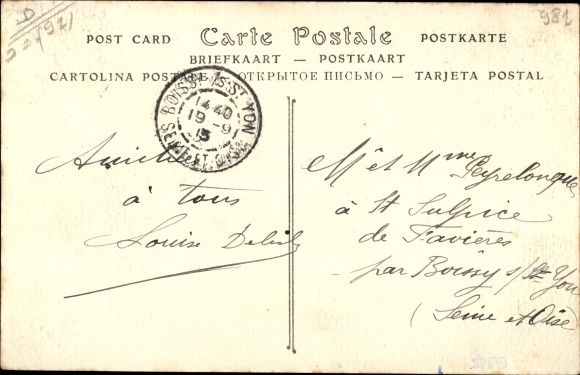 982
POST CARD Carte Postale POSTKARTE
BRIEFKAART — POSTKAART
CARTOLINA POSTALE ОТКРЫТОЕ ПИСЬМО — TARJETA POSTAL
BOISSY-Is-St YON
14 40
19 -9
13
SEINE ET OISE
à tous
Louise
Mr et Mme Peyrelongue
à St Sulpice
de Favières
par Boissy s/s St Yon
(Seine et Oise